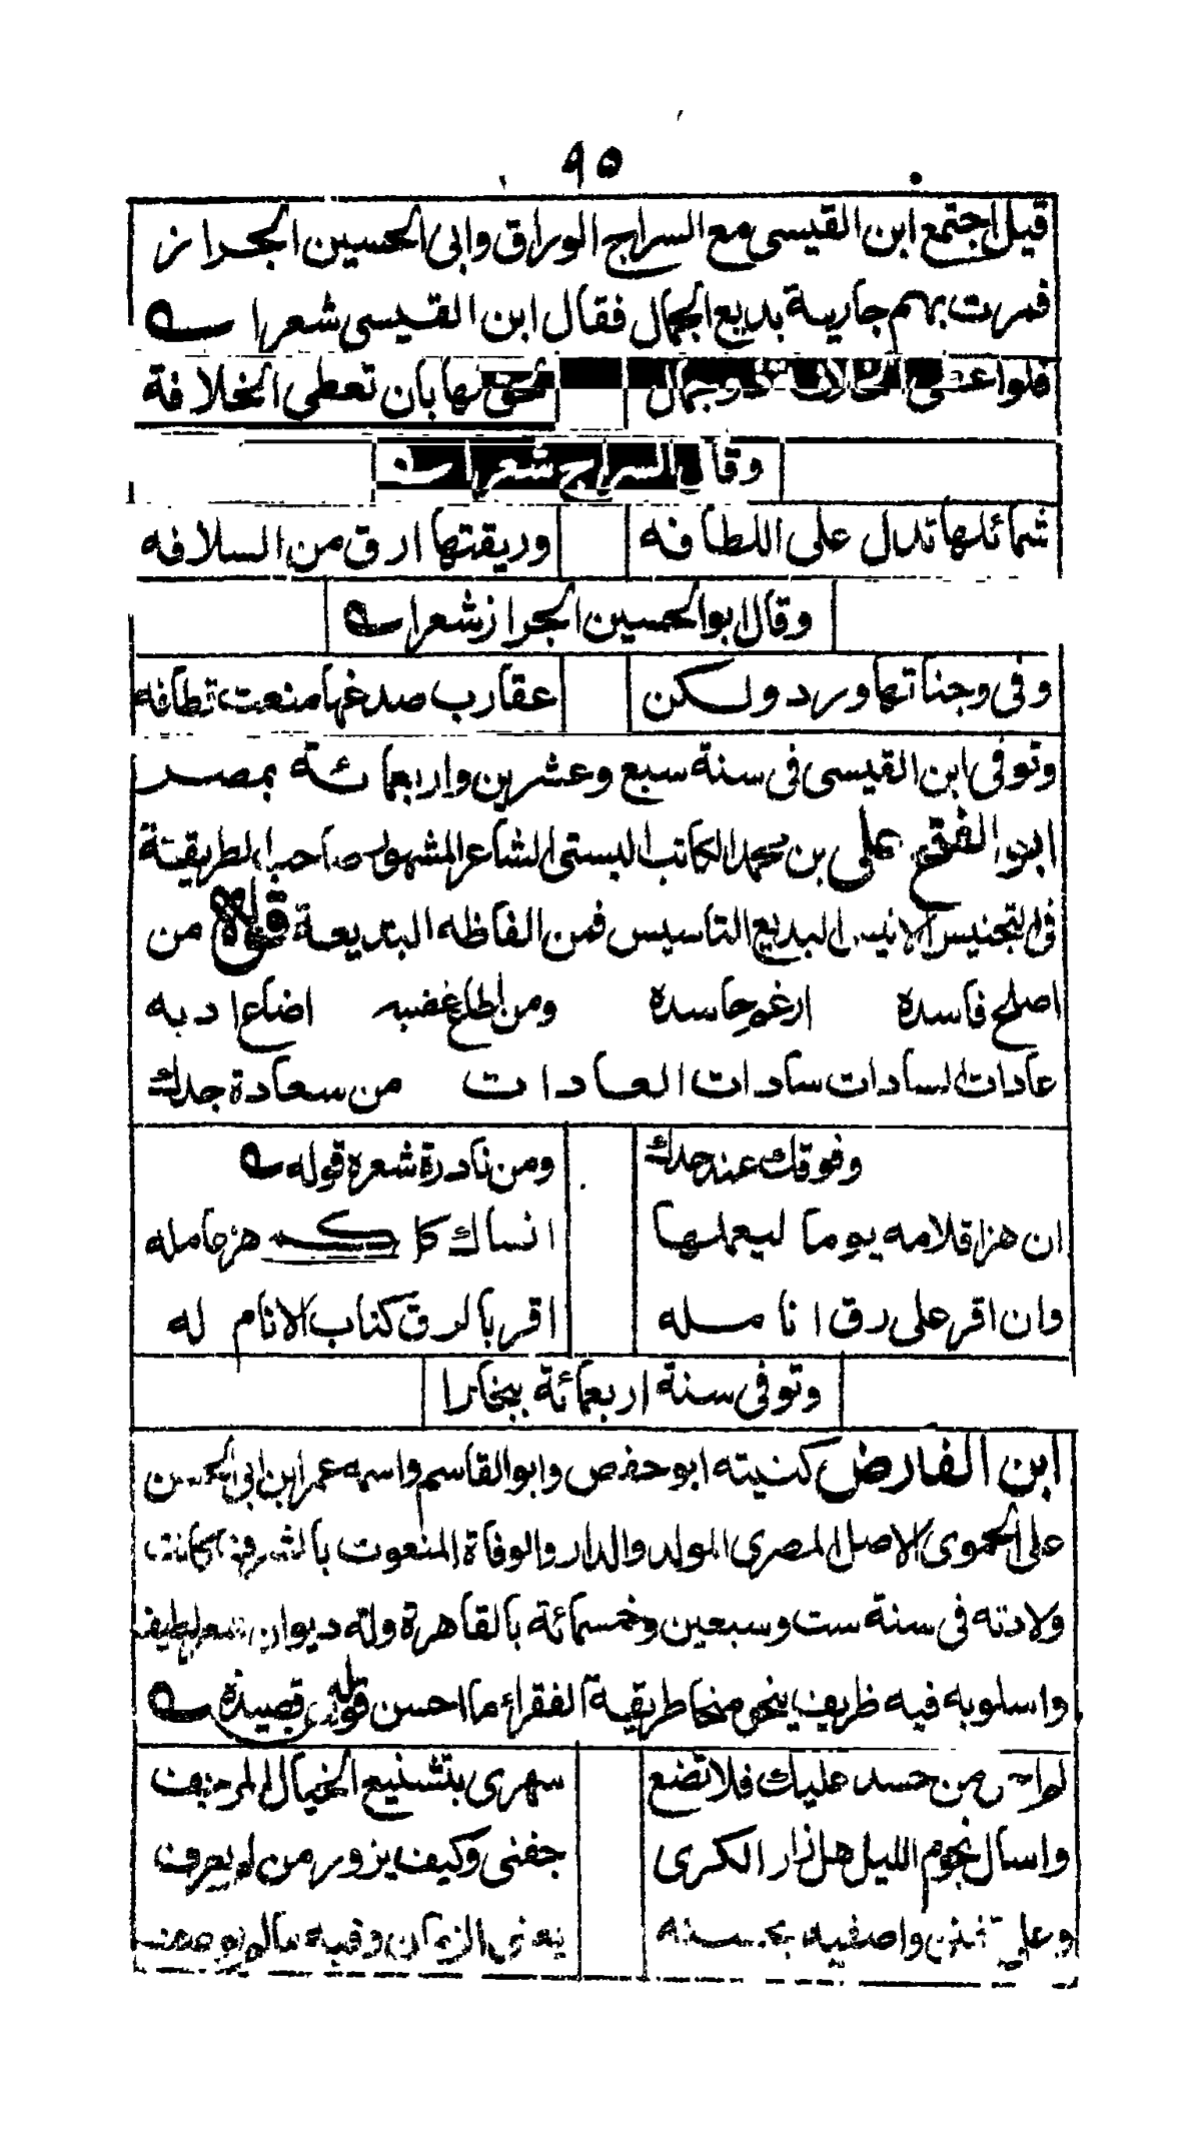 ٩٥
قيل اجتمع ابن القيسى مع السراج الوراق وابى الحسين الجراز
فمرت بهم جارية بديع الجمال فقال ابن القيسى شعرا
فلوا جمال تحق لها بان تعطى الخلافة
وقال السراج شعرا
شمائلها تدل على اللطافه وريقتها ارق من السلافه
وقال ابو الحسين الجراز شعرا
وفى وجناتها ورد ولكن عقارب صدغها منعت قطافه
وتوفى ابن القيسى فى سنة سبع وعشرين واربعمائة بمصر
ابو الفتح على بن محمد الكاتب البستى الشاعر المشهور صاحب الطريقة
فى التجنيس الانيس البديع التاسيس فمن الفاظه البديعة قوله من
اصلح فاسدة ارغم حاسدة ومن اطاع غضبه اضاع ادبه
عادات السادات سادات العادات من سعادة جدك
وفوقك عند حدك ومن نادرة شعره قوله
ان هز اقلامه يوما ليعملها انساك كل كمى هز عامله
وان اقر على رق انامله اقر بالرق كتاب الانام له
وتوفى سنة اربعمائة ببخارا
ابن الفارض كنيته ابو حفص وابو القاسم واسمه عمر ابن ابى الحسن
على الحموى الاصل المصرى المولد والدار والوفاة المنعوت بالشرف كانت
ولادته فى سنة ست وسبعين وخمسمائة بالقاهرة وله ديوان شعر لطيف
واسلوبه فيه ظريف ينحو منحا طريقة الفقراء ما احسن قوله قصيدة
من حسد عليك فلا تضع سهرى بتشنيع الخيال المرجف
واسال نجوم الليل هل زار الكرى جفنى وكيف يزور من لم يعرف
وعلى تفنن واصفيه بحسنه يفنى الزمان وفيه مالم يوصف